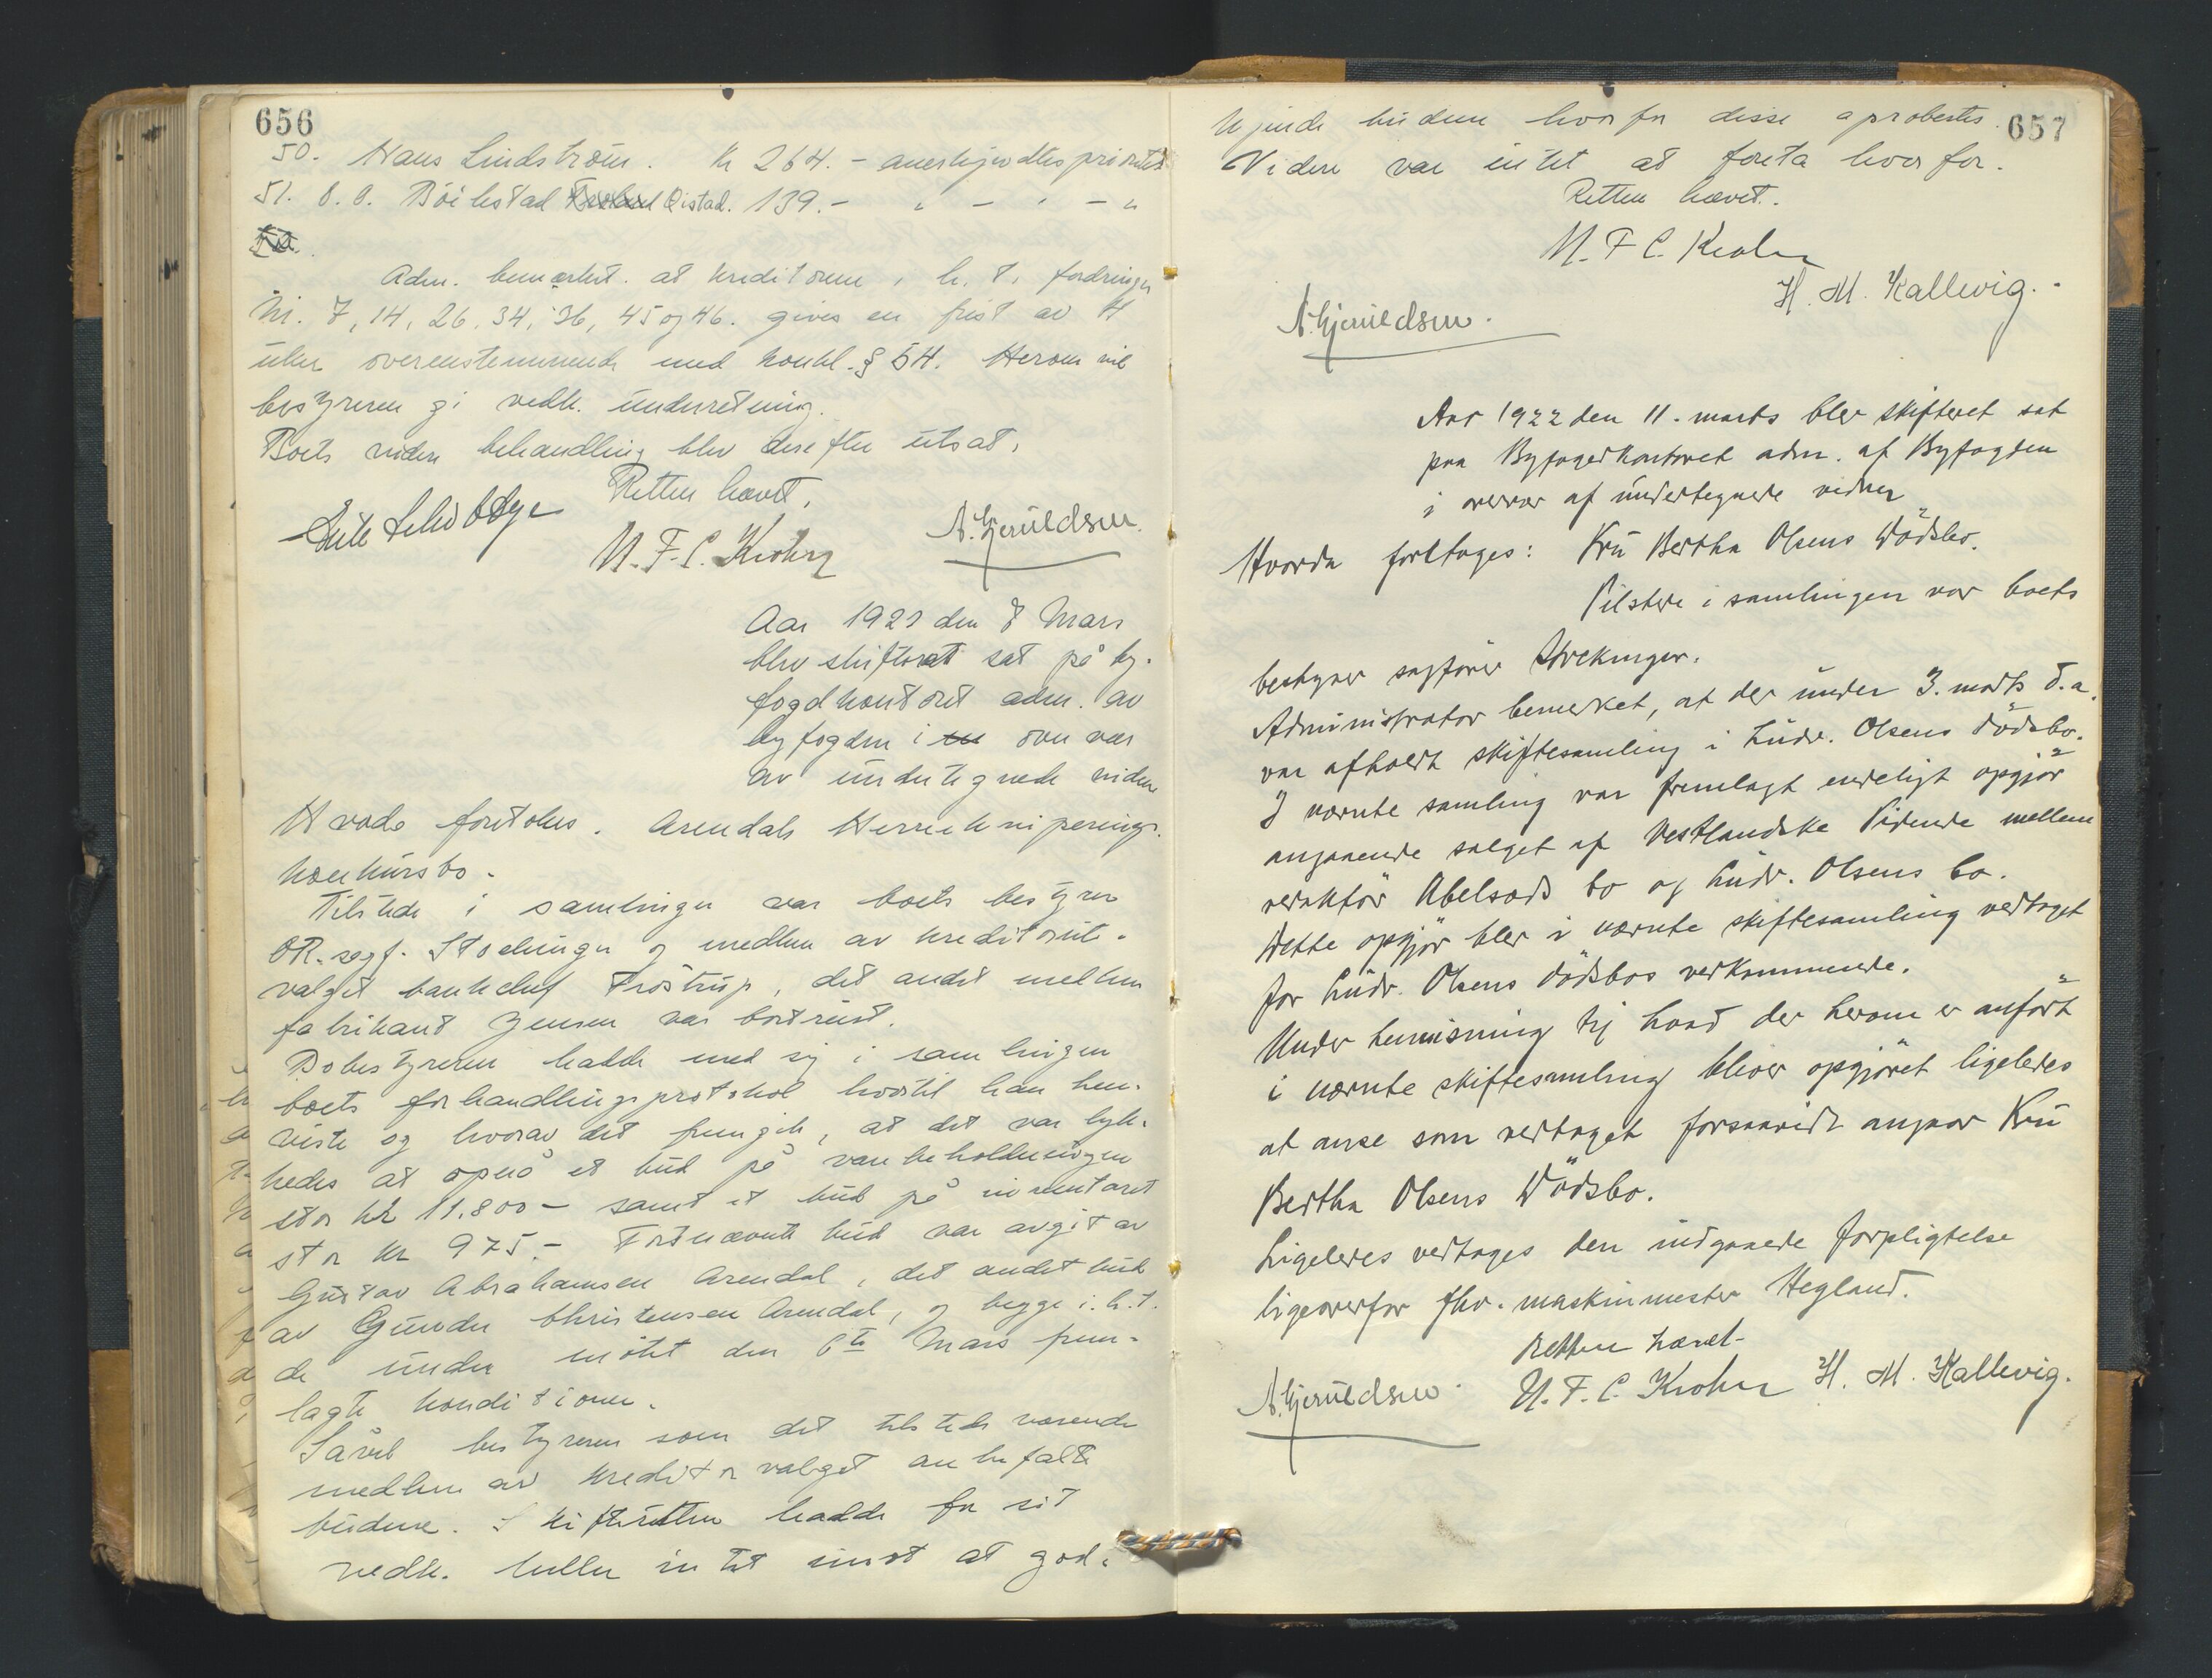 656
50. Hans Lindström. Kr 264.- anerkjendtes prioritet
51. O. O. Böilestad Öistad. 139.- " - " - "
Adm. bemærket. at kreditorene i h. t. fordringer
Nr. 7, 14, 26, 34, 36, 45 og 46. gives en frist av 4
uker overenstemmende med konkl. § 54. Herom vil
bestyreren gi vedk. underretning.
Boets videre behandling blev derefter utsat.
Retten hævet.
N. F. C. Krohn A. Gjeruldsen
Aar 1922 den 8 Mars
blev skifteret sat på by-
fogdkontoret adm. av
byfogden i over vær
av undertegnede vidner
Hvorda foretokes. Arendals Herreekviperings
konkursbo.
Tilstede i samlingen var boets bestyrer
OR. sagf. Stockinger og medlem av kreditorut-
valget bankchef Fröstrup, det andet medlem
fabrikant Jensen var bortreist.
Bobestyreren hadde med sig i samlingen
boets forhandlingsprotokol hvortil han hen-
viste og hvorav det fremgik, at det var lyk-
kedes at opnå et bud på varebeholdningen
stor kr 11.800- samt et bud på inventaret
stor kr 975.- Førstnævnte bud var avgit av
Gustav Abrahamsen Arendal, det andet bud
av Gunder Christensen Arendal, og begge i. h. t.
de under mötet den 6te Mars frem-
lagte konditioner.
Såvel bestyreren som det tilstede værende
medlem av kreditorvalget anbefalte
budene. Skifteretten hadde for sit
vedk. heller intet imot at god-
657
kjende budene hvorfor disse aproberes.
Videre var intet at foreta hvorfor.
Retten hævet.
N. F. C. Krohn
H. M. Kallevig.
A. Gjeruldsen.
Aar 1922 den 11. marts blev skifteret sat
paa Byfogedkontoret adm. af Byfogden
i overvær af undertegnede vidner
Hvorda foretoges: Fru Bertha Olsens Dödsbo.
Tilstede i samlingen var boets
bestyrer sagförer Stockinger.
Administrator bemerket, at der under 3. marts d. a.
var afholdt skiftesamling i Ludv. Olsens dödsbo.
I nævnte samling var fremlagt endeligt opgjör
angaaende salget af Vestlandske Tidende mellem
redaktör Abelsøds bo og Ludv. Olsens bo.
Dette opgjör blev i nævnte skiftesamling vedtaget
for Ludv. Olsens dödsbos vedkommende.
Under henvisning til hvad der herom er anfört
i nævnte skiftesamling bliver opgjöret ligeledes
at anse som vedtaget forsaavidt angaar Fru
Bertha Olsens Dödsbo.
Ligeledes vedtages den indgaaede forpligtelse
ligeoverfor fhv. maskinmester Hegland.
Retten hævet.
A. Gjeruldsen. N. F. C. Krohn H. M. Kallevig.